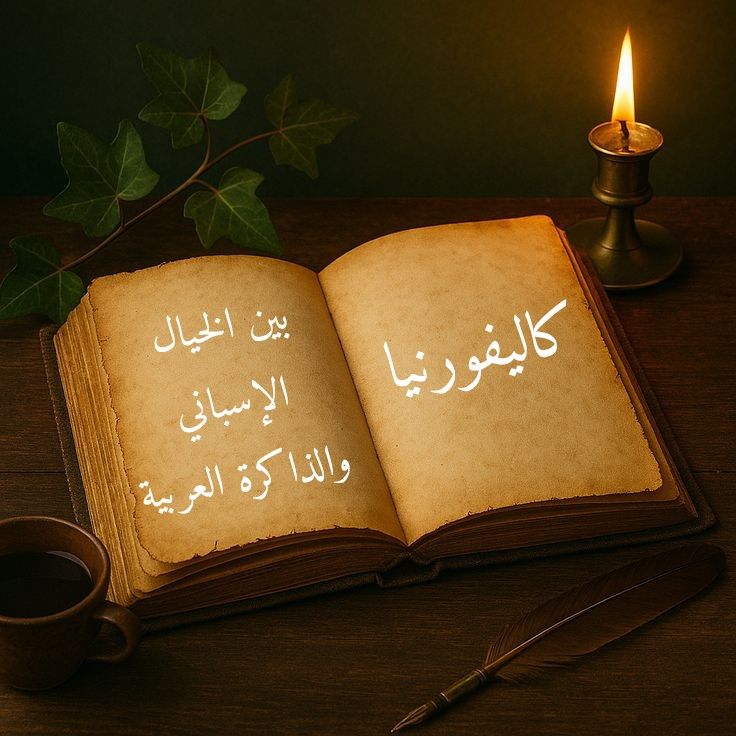 كاليفورنيا
بين الخيال
الإسباني
والذاكرة العربية